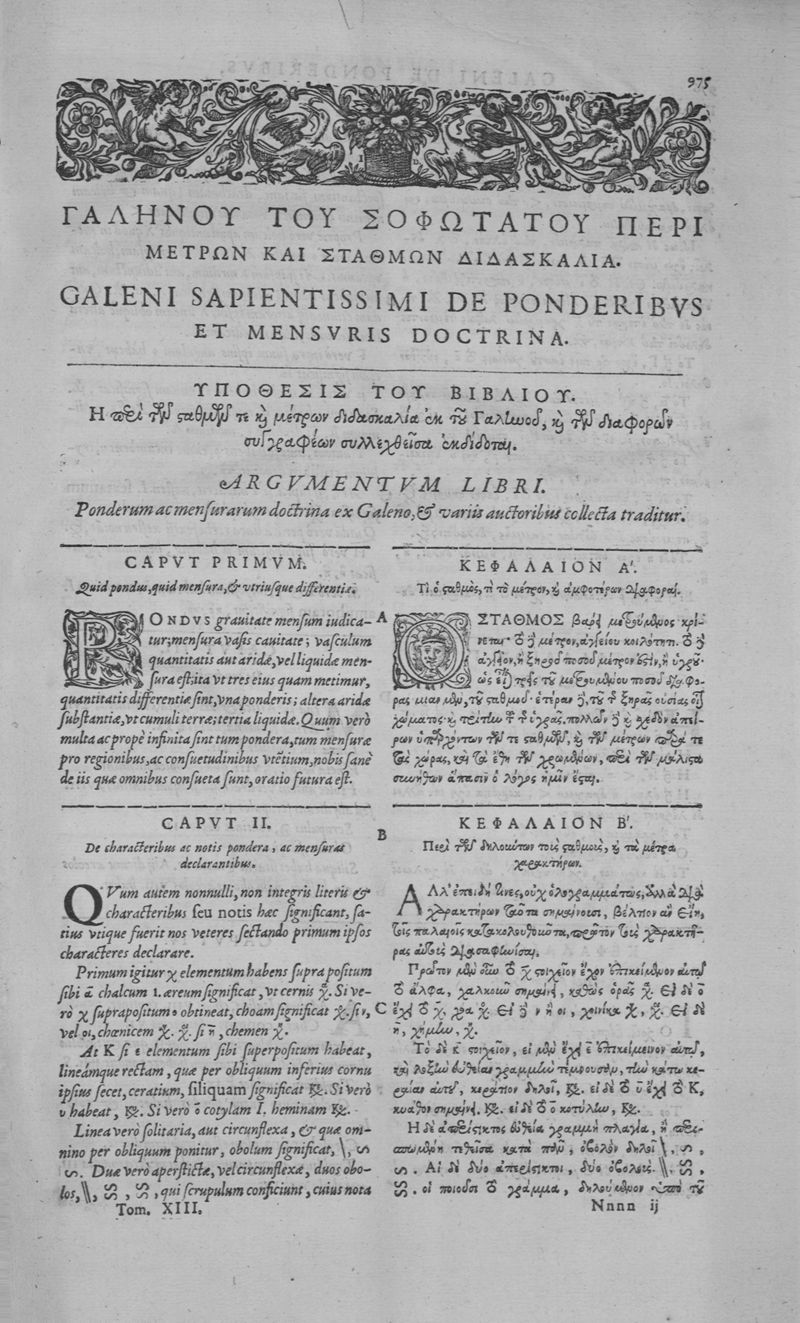 975
ΓΑΛΗΝΟΥ ΤΟΥ ΣΟΦΩΤΑΤΟΥ ΠΕΡΙ
ΜΕΤΡΩΝ ΚΑΙ ΣΤΑΘΜΩΝ ΔΙΔΑΣΚΑΛΙΑ.
GALENI SAPIENTISSIMI DE PONDERIBVS
ET MENSVRIS DOCTRINA.
ΥΠΟΘΕΣΙΣ ΤΟΥ ΒΙΒΛΙΟΥ.
Η περὶ τῶν σταθμῶν τε καὶ μέτρων διδασκαλία ἐκ τοῦ Γαλίωοῦ, καὶ τῶν διαφορῶν
συγγραφέων συλλεχθεῖσα ἐκδίδοται.
ARGVMENTVM LIBRI.
Ponderum ac mensurarum doctrina ex Galeno, & variis auctoribus collecta traditur.
CAPVT PRIMVM.
Quid pondus, quid mensura, & vtriusque differentiæ.
PONDVS grauitate mensum iudica-
tur; mensura vasis cauitate; vasculum
quantitatis aut aridæ, vel liquidæ men-
sura est; ita vt tres eius quam metimur,
quantitatis differentiæ sint, vna ponderis; altera aridæ
substantiæ, vt cumuli terræ; tertia liquidæ. Quum verò
multa ac propè infinita sint tum pondera, tum mensuræ
pro regionibus, ac consuetudinibus vtētium, nobis sanè
de iis quæ omnibus consueta sunt, oratio futura est.
CAPVT II.
De characteribus ac notis pondera, ac mensuras
declarantibus.
QVum autem nonnulli, non integris literis &
characteribus seu notis hæc significant, sa-
tius vtique fuerit nos veteres sectando primum ipsos
characteres declarare.
Primum igitur χ elementum habens supra positum
sibi ᾱ chalcum 1. æreum significat, vt cernis χ̃. Si ve-
rò χ suprapositum o obtineat, choam significat χ̃. si ν,
vel οι, chœnicem χ̃. χ̃. si η̄, chemen χ̃.
At K si ε elementum sibi superpositum habeat,
lineámque rectam, quæ per obliquum inferius cornu
ipsius secet, ceratium, siliquam significat Si verò
υ habeat, Si verò ō cotylam I. heminam
Linea verò solitaria, aut circunflexa, & quæ om-
nino per obliquum ponitur, obolum significat, \, ഗ
Duæ verò aperstictæ, vel circunflexæ, duos obo-
los, \\, qui scrupulum conficiunt, cuius nota
Tom. XIII.
A
B
C
ΚΕΦΑΛΑΙΟΝ Α'.
Τί ὁ σταθμὸς, τί τὸ μέτρον, καὶ ἀμφοτέρων διαφοραί.
ΟΣΤΑΘΜΟΣ βάρει μετρούμενος κρί-
νεται· τὸ δὲ μέτρον, ἀγγείου κοιλότητι. τὸ δὲ
ἀγγεῖον, ἢ ξηροῦ ποσοῦ μέτρον ἐστὶν, ἢ ὑγροῦ·
ὡς εἶναι τρεῖς τοῦ μετρουμένου ποσοῦ διαφο-
ρὰς μίαν μὲν, τοῦ σταθμοῦ· ἑτέραν δὲ, τοῦ τῆς ξηρᾶς οὐσίας οἷον
χώματος· καὶ τρίτην τῆς ὑγρᾶς. πολλῶν δὲ καὶ σχεδὸν ἀπεί-
ρων ὑπαρχόντων τῶν τε σταθμῶν, καὶ τῶν μέτρων παρά τε
τὰς χώρας, καὶ τὰ ἔθη τῶν χρωμένων, περὶ τῶν μάλιστα
συνήθων ἅπασιν ὁ λόγος ἡμῖν ἔσται.
ΚΕΦΑΛΑΙΟΝ Β'.
Περὶ τῶν δηλούντων τοὺς σταθμοὺς, καὶ τὰ μέτρα
χαρακτήρων.
ΑΛλ' ἐπειδή τινες, οὐχ ὁλογραμμάτως, ἀλλὰ διὰ
χαρακτήρων ταῦτα σημαίνουσι, βέλτιον ἂν εἴη,
τοῖς παλαιοῖς κατακολουθοῦντα, πρῶτον τοὺς χαρακτῆ-
ρας αὐτοὺς διασαφηνίσαι.
Πρῶτον μὲν οὖν τὸ χ στοιχεῖον ἔχον ἐπικείμενον αὐτῷ
τὸ ἄλφα, χαλκοῦν σημαίνει, καθὼς ὁρᾷς χ̃. Εἰ δὲ ὃ
ἔχει τὸ χ, Εἰ δὲ ν ἢ οι, χοίνικα χ̃, χ̃. Εἰ δὲ
η̄, χήμην, χ̃.
Τὸ δὲ κ̄ στοιχεῖον, εἰ μὲν ἔχει ε̄ ἐπικείμενον αὐτῷ,
καὶ λοξὴν εὐθεῖαν γραμμὴν τέμνουσαν, τὴν κάτω κε-
ραίαν αὐτοῦ, κεράτιον δηλοῖ, εἰ δὲ τὸ υ ἔχει τὸ Κ,
κύαθον σημαίνει, εἰ δὲ τὸ ο κοτύλην,
Η δὲ ἀπερίστικτος εὐθεῖα γραμμὴ πλαγία, ἢ περι-
εσπωμένη τεθεῖσα κατὰ πλοῦ, ὀβολὸν δηλοῖ \,
Αἱ δὲ δύο ἀπερίστικτοι, δύο ὀβολοὺς. \\.
οἱ ποιοῦσι τὸ γράμμα, δηλούμενον ὑπὸ τοῦ
Nnnn ij